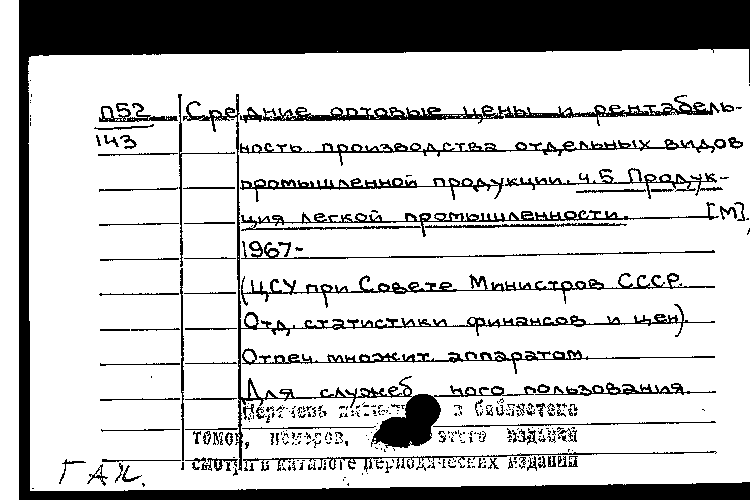 П52
143
Средние оптовые цены и рентабель-
ность производства отдельных видов
промышленной продукции. ч.5 Продук-
ция легкой промышленности. [М],
1967-
(ЦСУ при Совете Министров СССР.
Отд. статистики финансов и цен).
Отпеч. множит. аппаратом.
Для служебного пользования.
Перечень в библиотеке
томов, номеров, этого издания
смотри в каталоге периодических изданий